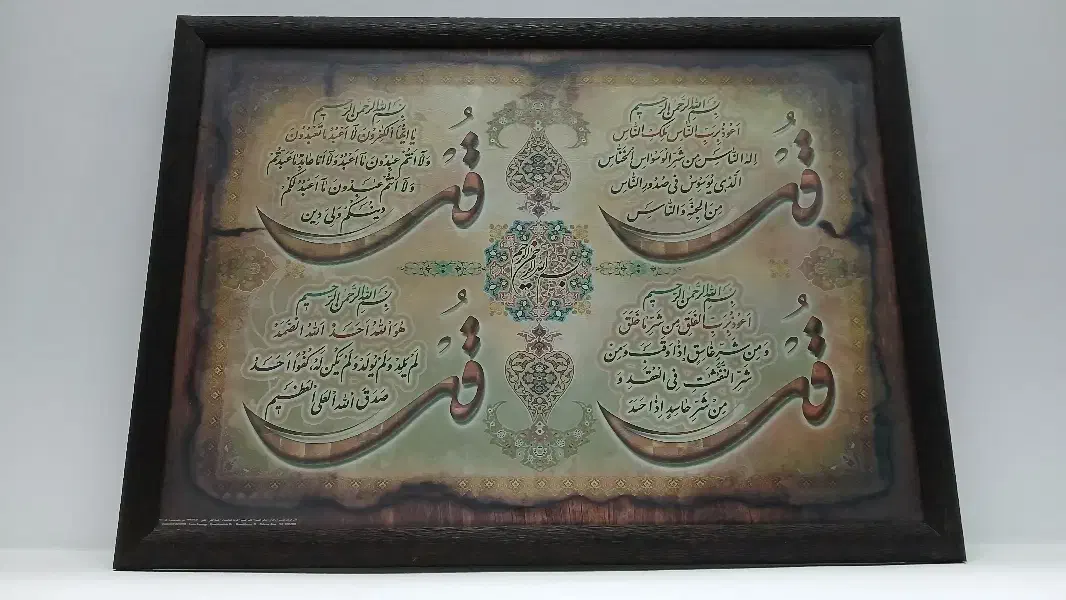 بِسْمِ اللهِ الرَّحْمنِ الرَّحیمِ
قُلْ
اَعُوذُ بِرَبِّ النّاسِ مَلِکِ النّاسِ
اِلهِ النّاسِ مِن شَرِّ الْوَسْواسِ الْخَنّاسِ
اَلَّذی یُوَسْوِسُ فی صُدُورِ النّاسِ
مِنَ الْجِنَّةِ وَ النّاسِ
بِسْمِ اللهِ الرَّحْمنِ الرَّحیمِ
قُلْ
یا اَیُّهَا الْکفِرُونَ لا اَعْبُدُ ما تَعْبُدُونَ
وَلا اَنْتُمْ عبِدُونَ ما اَعْبُدُ وَلا اَنا عابِدٌ ما عَبَدْتُمْ
وَلا اَنْتُمْ عبِدُونَ ما اَعْبُدُ لَکُمْ
دینُکُمْ وَلِیَ دین
بسم الله الرحمن الرحیم
بِسْمِ اللهِ الرَّحْمنِ الرَّحیمِ
قُلْ
اَعُوذُ بِرَبِّ الْفَلَقِ مِن شَرِّ ما خَلَقَ
وَ مِن شَرِّ غاسِقٍ اِذا وَقَبَ وَ مِن
شَرِّ النَّفّثتِ فِی الْعُقَدِ وَ
مِنْ شَرِّ حاسِدٍ اِذا حَسَدَ
بِسْمِ اللهِ الرَّحْمنِ الرَّحیمِ
قُلْ
هُوَ اللهُ اَحَدٌ اَللهُ الصَّمَدُ
لَمْ یَلِدْ وَلَمْ یُولَدْ وَلَمْ یَکُن لَهُ کُفُوًا اَحَدٌ
صَدَقَ اللهُ الْعَلِیُّ الْعَظیمُ